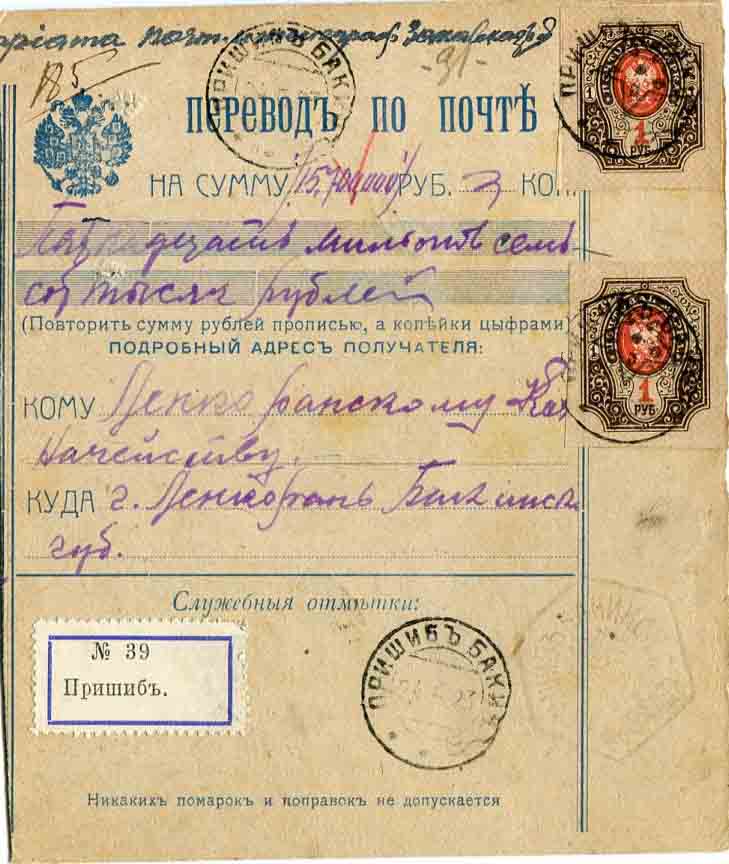 почт.
185
-91-
ПРИШИБЪ БАКИН
ПЕРЕВОДЪ ПО ПОЧТѢ
НА СУММУ 15.700,000 РУБ. КОП
Пятнадцать мильонъ семь-
сот тысяч рублей
(Повторить сумму рублей прописью, а копѣйки цыфрами)
ПОДРОБНЫЙ АДРЕСЪ ПОЛУЧАТЕЛЯ:
КОМУ Ленкоранскому Каз
начейству.
КУДА г. Ленкорань Бакинск
губ.
1
РУБ
1
РУБ
Служебныя отмѣтки:
№ 39
Пришибъ.
ПРИШИБЪ БАКИН
Никакихъ помарокъ и поправокъ не допускается